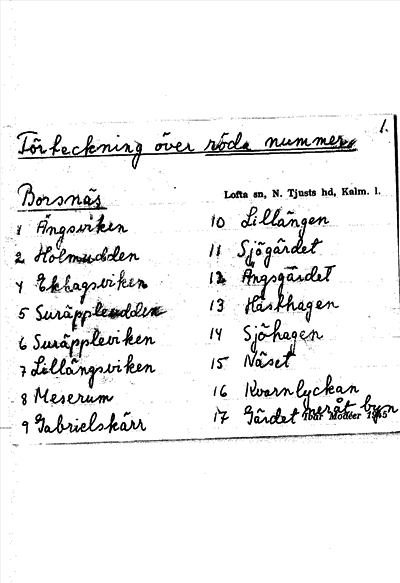 1.
Förteckning över röda nummer
Borsnäs
Lofta sn, N. Tjusts hd, Kalm. l.
1 Ängsviken
2 Holmudden
4 Ekhagsviken
5 Suräppleudden
6 Suräppleviken
7 Lillängsviken
8 Meserum
9 Gabrielskärr
10 Lillängen
11 Sjögärdet
12 Ängsgärdet
13 Hässhagen
14 Sjöhagen
15 Näset
16 Kvarnlyckan
17 Gärdet mot byn
Ivar Modéer